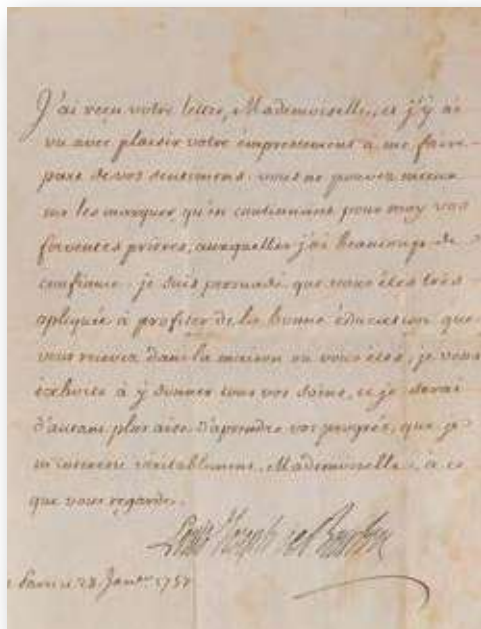 J'ai recu votre lettre, Mademoiselle, et j'y ai
vu avec plaisir votre empressement a me faire
part de vos sentimens. vous ne pouvez mieux
me les marquer qu'en continuant pour moy vos
ferventes prieres, auxquelles j'ai beaucoup de
confiance. je suis persuadé que vous êtes très
apliquée à profiter de la bonne éducation que
vous recevez dans la maison ou vous êtes, je vous
exhorte à y donner tous vos soins, et je serai
d'autant plus aise d'aprendre vos progrès, que je
m'interesse véritablement, Mademoiselle, à ce
qui vous regarde.
Louis Joseph de Bourbon
Paris 28. Janv.er